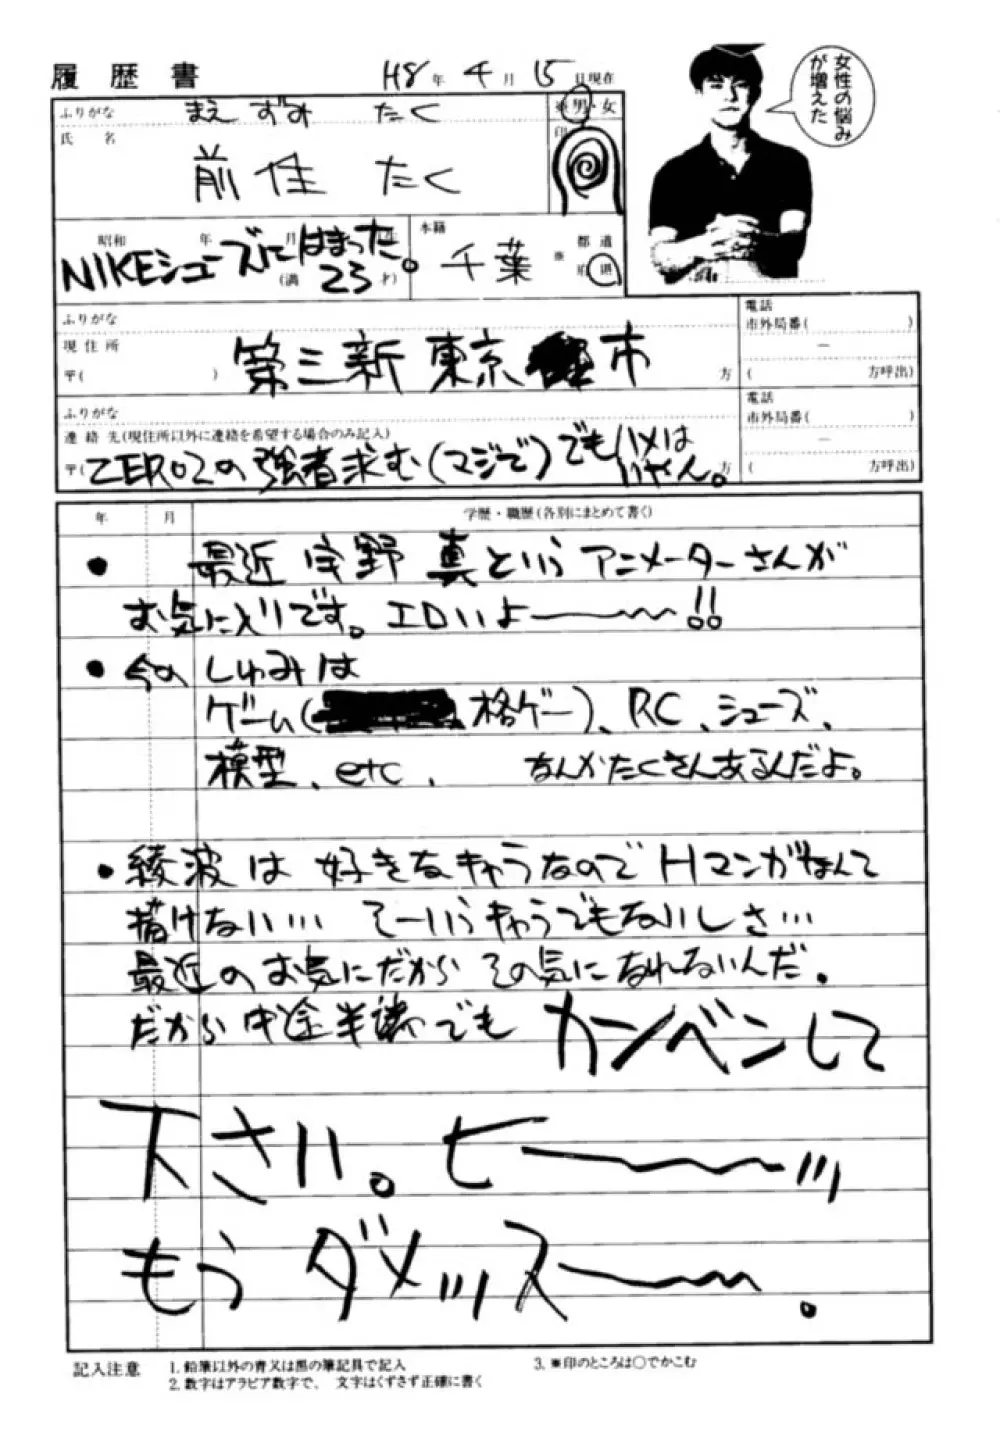 履歴書 H8年4月15日現在
ふりがな まえずみ たく
※男・女
氏名
前住 たく
印
女性の悩み
が増えた
昭和 年 月
NIKEシューズにはまった。
(満23才)
本籍
千葉
※都道府県
ふりがな
現住所
〒( )
第三新東京市
方
電話
市外局番( )
ー
( 方呼出)
ふりがな
連絡先(現住所以外に連絡を希望する場合のみ記入)
〒(ZERO2の強者求む(マジで)でもハメは
いやん。
方
電話
市外局番( )
ー
( 方呼出)
年 月 学歴・職歴(各別にまとめて書く)
● 最近宇野真というアニメーターさんが
お気に入りです。エロいよ〜!!
● 今のしゅみは
ゲーム( 格ゲー)、RC、シューズ、
模型、etc. なんかたくさんあるんだよ。
● 綾波は好きなきゃうなのでHマンガなんて
描けない… そーいうきゃうでもないしさ…
最近のお気にだからその気になれないんだ。
だから中途半端でもカンベンして
下さい。ヒー〜ッ
もうダメッスー〜。
記入注意
1. 鉛筆以外の青又は黒の筆記具で記入
2. 数字はアラビア数字で、文字はくずさず正確に書く
3. ※印のところは○でかこむ